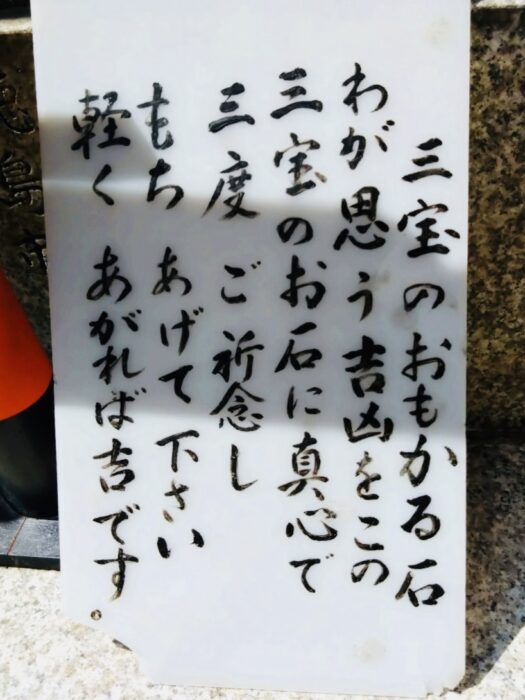 三宝のおもかる石
わが思う吉凶をこの
三宝のお石に真心で
三度ご祈念し
もちあげて下さい
軽くあがれば吉です。
島